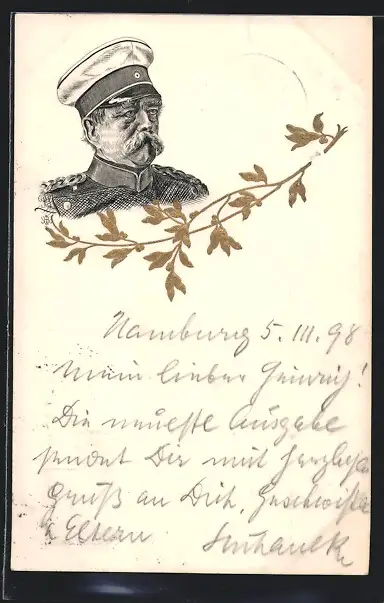 Hamburg 5. III. 98
Mein lieber Heinrich!
Die neueste Ausgabe
sendet Dir mit herzlich
Gruß an Dich, Geschwister
& Eltern